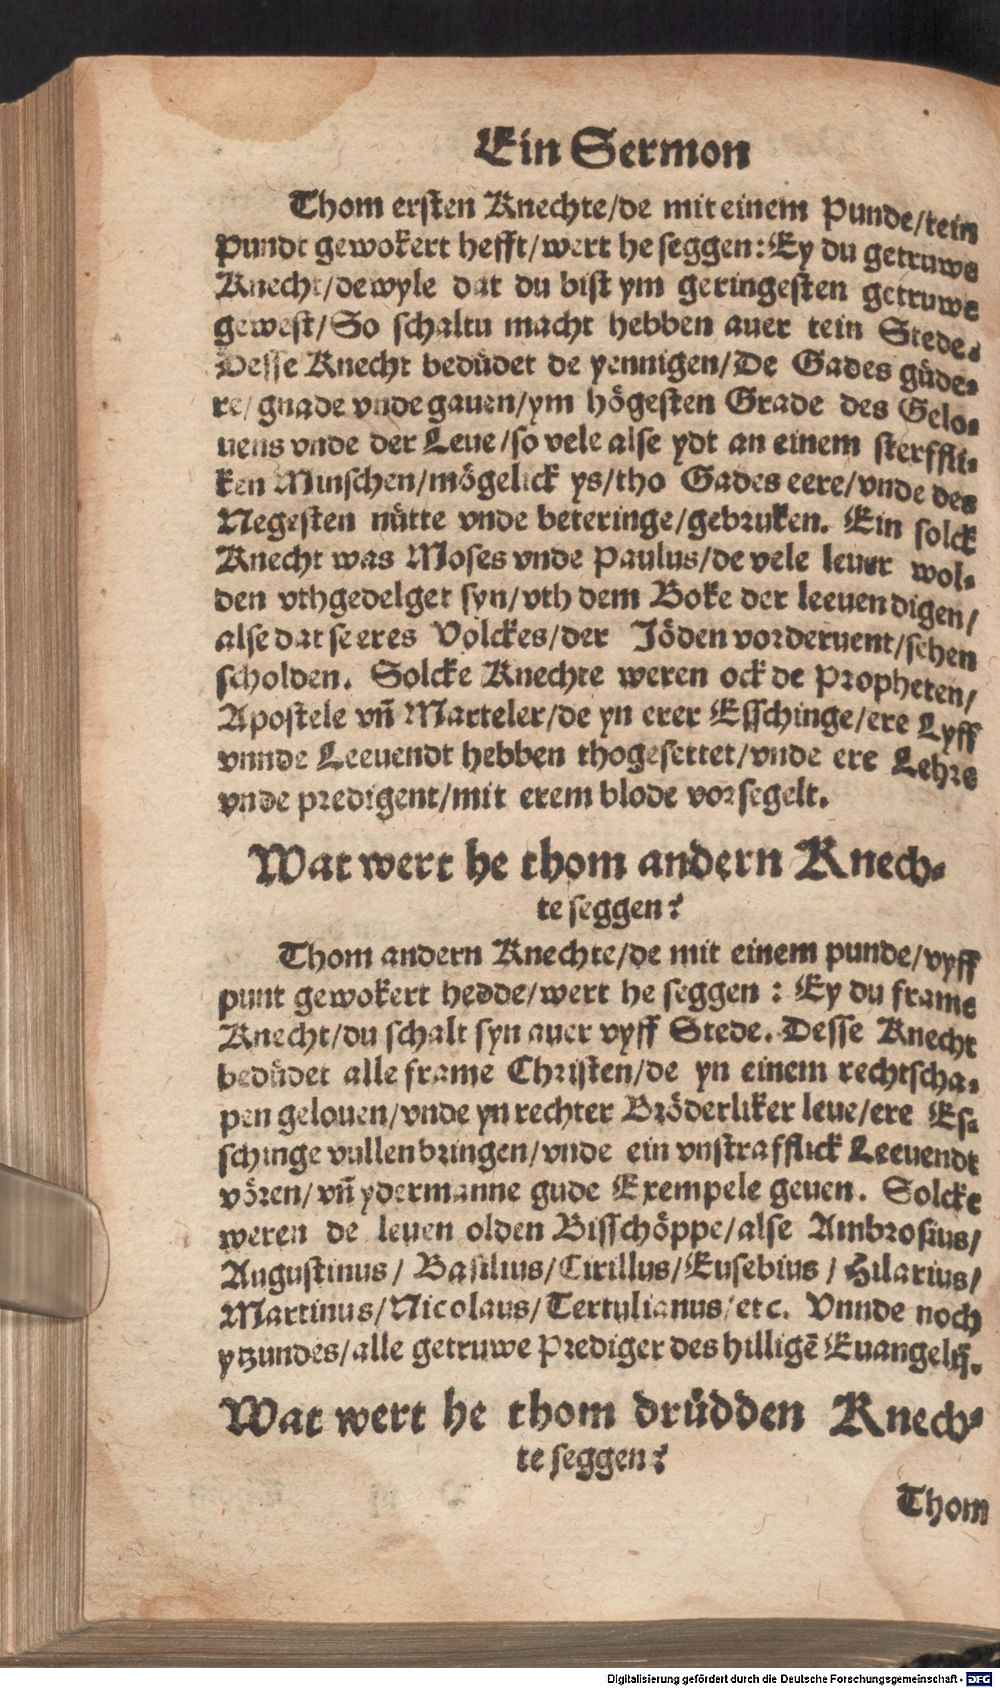 Ein Sermon
Thom ersten Knechte/de mit einem Punde/tein
Pundt gewokert hefft/wert he seggen: Ey du getruwe
Knecht/dewyle dat du bist ym geringesten getruwe
gewest/So schaltu macht hebben auer tein Stede.
Desse Knecht bedüdet de yennigen/De Gades güde-
re/gnade vnde gauen/ym högesten Grade des Gelo-
uens vnde der Leue/so vele alse ydt an einem sterffli-
ken Minschen/mögelick ys/tho Gades eere/vnde des
Negesten nütte vnde beteringe/gebruken. Ein solck
Knecht was Moses vnde Paulus/de vele leuer wol-
den vthgedelget syn/vth dem Boke der leeuendigen/
alse dat se eres Volckes/der Jöden vorderuent/sehen
scholden. Solcke Knechte weren ock de Propheten/
Apostele vñ Marteler/de yn erer Esschinge/ere Lyff
vnnde Leeuendt hebben thogesettet/vnde ere Lehre
vnde predigent/mit erem blode vorsegelt.
Wat wert he thom andern Knech-
te seggen?
Thom andern Knechte/de mit einem punde/vyff
punt gewokert hedde/wert he seggen: Ey du frame
Knecht/du schalt syn auer vyff Stede. Desse Knecht
bedüdet alle frame Christen/de yn einem rechtscha-
pen gelouen/vnde yn rechter Bröderliker leue/ere Es-
schinge vullenbringen/vnde ein vnstrafflick Leeuendt
vören/vñ ydermanne gude Exempele geuen. Solcke
weren de leuen olden Bisschöppe/alse Ambrosius/
Augustinus/Basilius/Cirillus/Eusebius/Hilarius/
Martinus/Nicolaus/Tertulianus/etc. Vnnde noch
ytzundes/alle getruwe Prediger des hilligē Euangelij.
Wat wert he thom drüdden Knech-
te seggen?
Thom
Digitalisierung gefördert durch die Deutsche Forschungsgemeinschaft - DFG